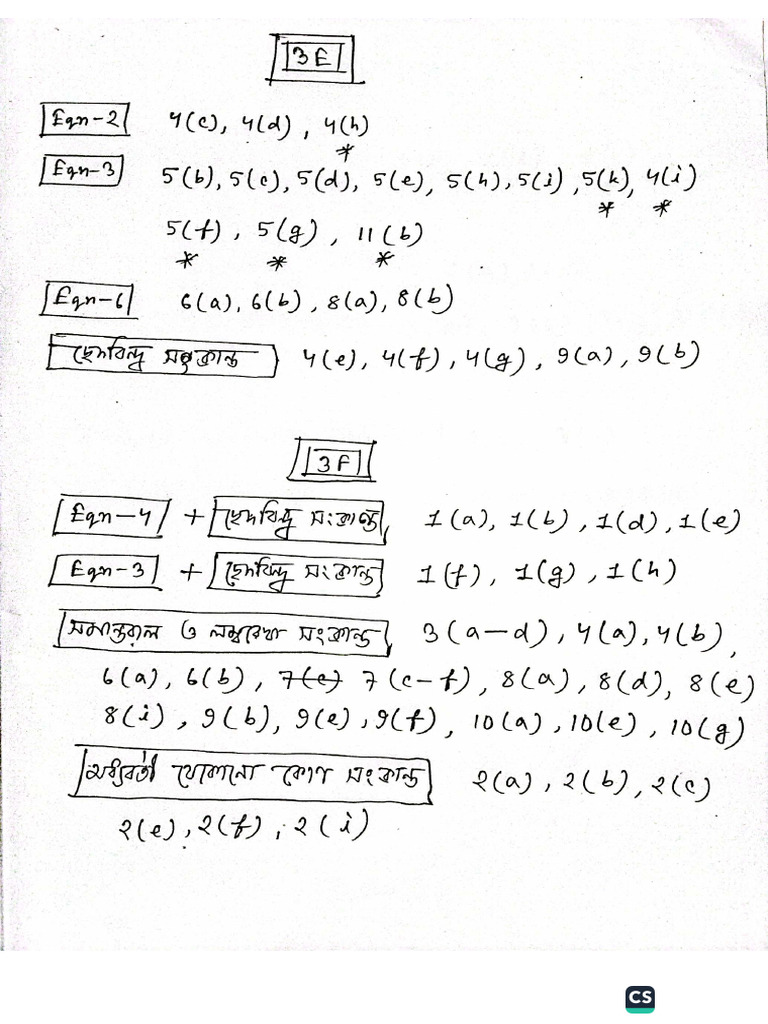 3E
Eqn-2 4(c), 4(d), 4(h)
*
Eqn-3 5(b), 5(c), 5(d), 5(e), 5(h), 5(i), 5(k), 4(i)
* *
5(f), 5(g), 11(b)
* * *
Eqn-6 6(a), 6(b), 8(a), 8(b)
ছেদবিন্দু সংক্রান্ত 4(e), 4(f), 4(g), 9(a), 9(b)
3F
Eqn-4 + ছেদবিন্দু সংক্রান্ত, 1(a), 1(b), 1(d), 1(e)
Eqn-3 + ছেদবিন্দু সংক্রান্ত 1(f), 1(g), 1(h)
সমান্তরাল ও লম্বরেখা সংক্রান্ত 3(a-d), 4(a), 4(b),
6(a), 6(b), 7(c) 7(c-f), 8(a), 8(d), 8(e)
8(i), 9(b), 9(e), 9(f), 10(a), 10(e), 10(g)
মধ্যবর্তী যেকোনো কোণ সংক্রান্ত 2(a), 2(b), 2(c)
2(e), 2(f), 2(i)
CS